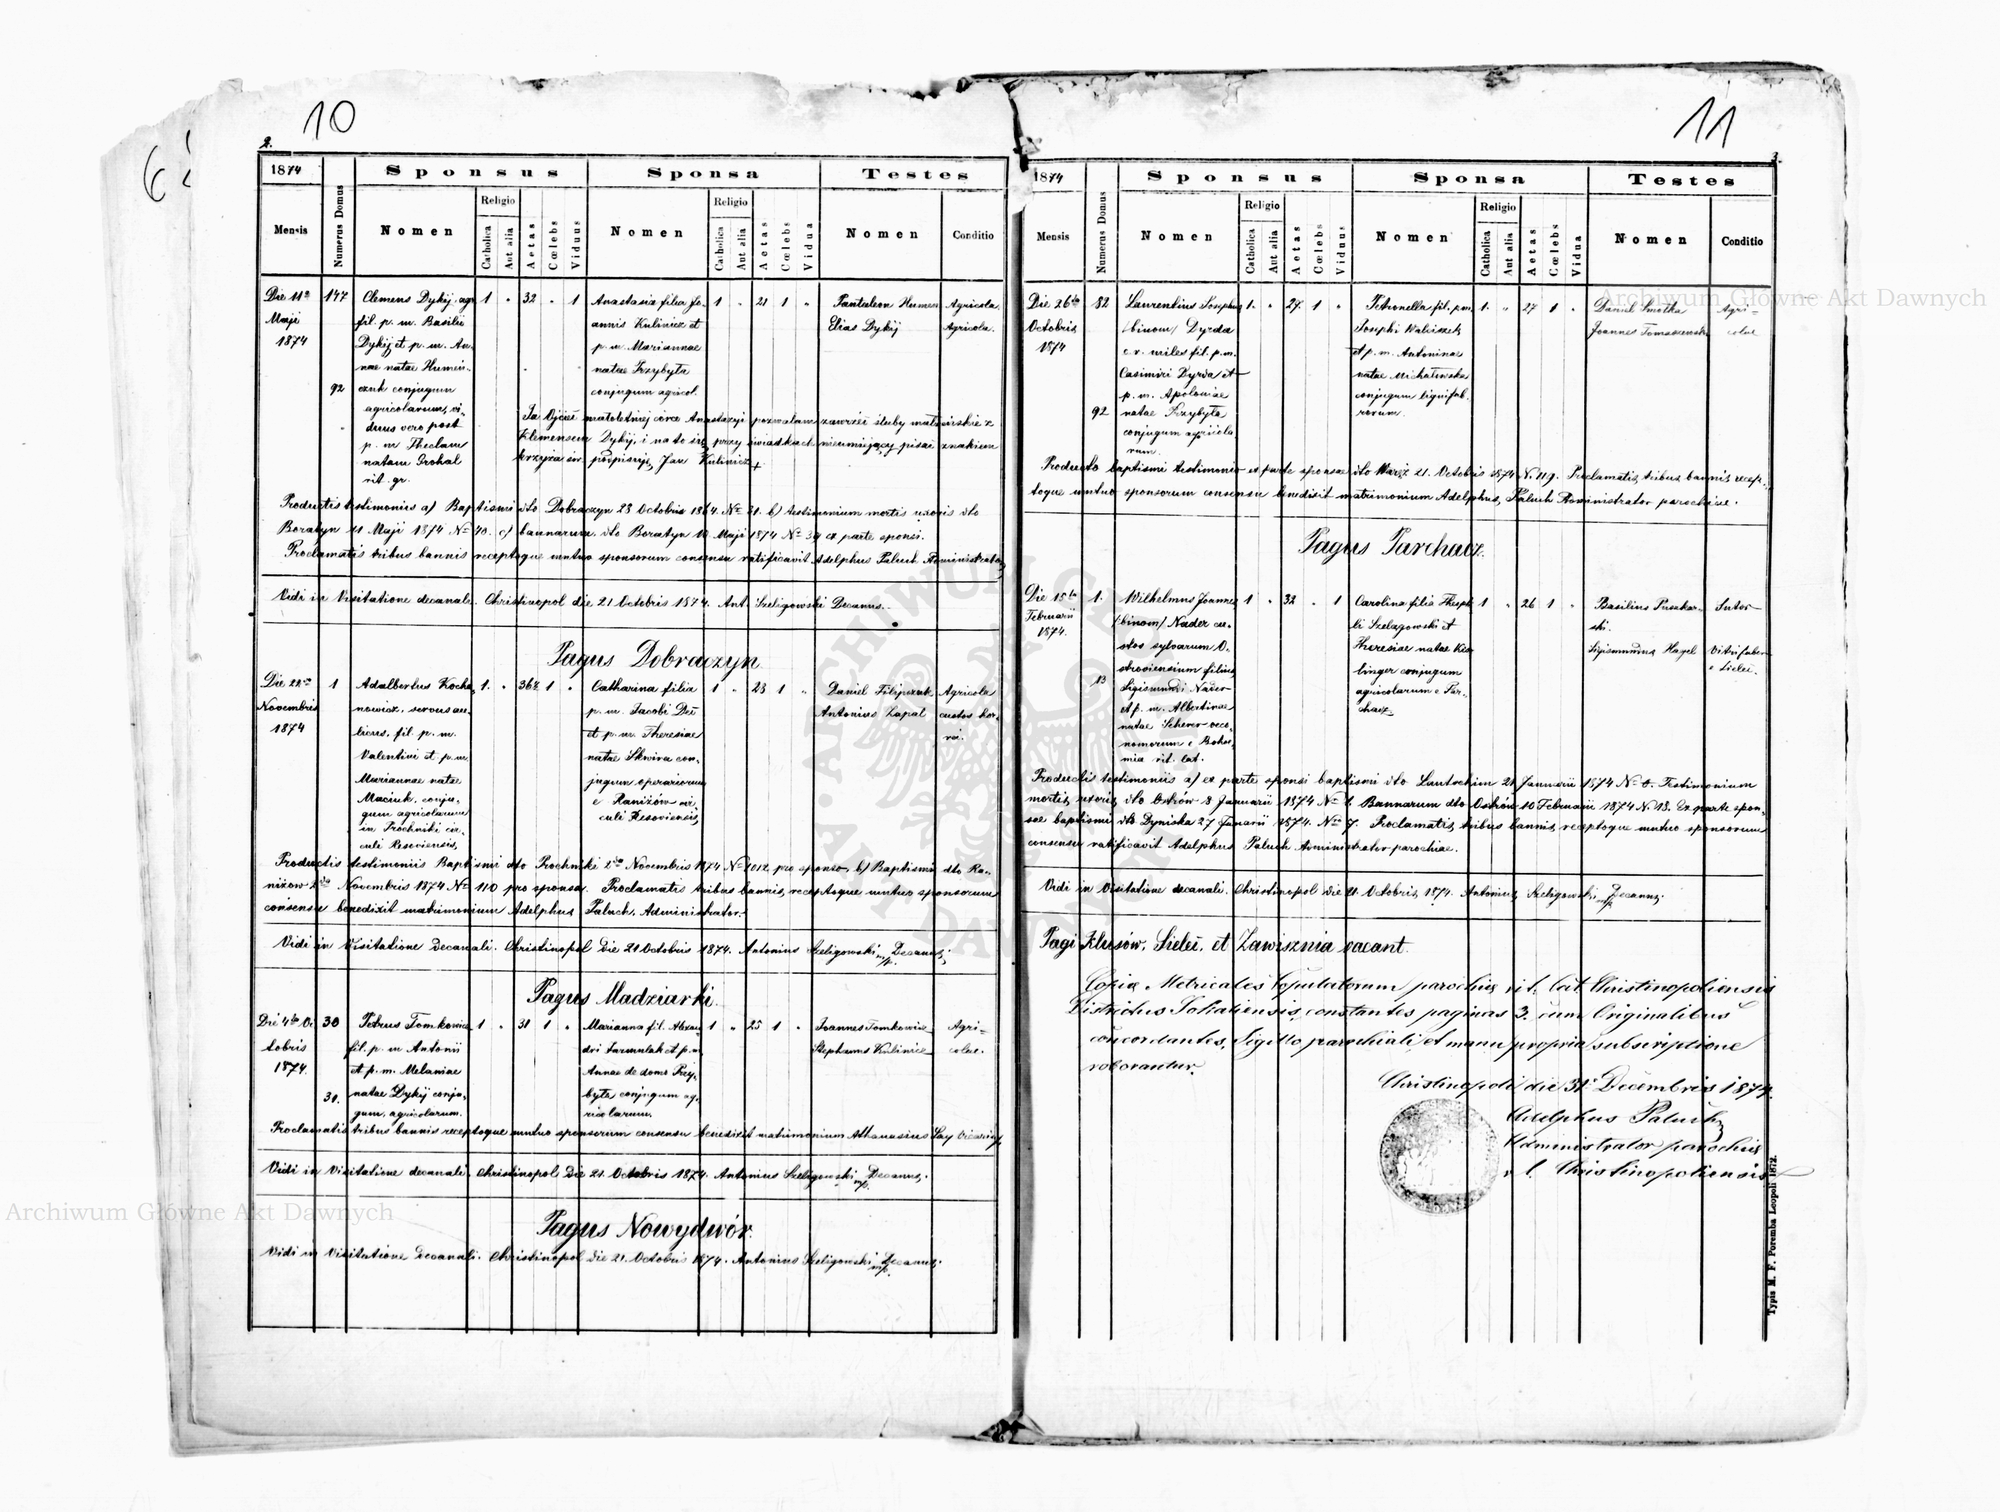 10
2.
1874
Sponsus
Sponsa
Testes
Mensis
Numerus Domus
Nomen
Religio
Catholica
Aut alia
Aetas
Cœlebs
Viduus
Nomen
Religio
Catholica
Aut alia
Aetas
Cœlebs
Vidua
Nomen
Conditio
Die 11a
Maji
1874
147
92
Clemens Dykij agr.
fil. p. m. Basilii
Dykij et p. m. An-
nae natae Humen-
czuk conjugum
agricolarum, vi-
duus vero post
p. m. Theclam
natam Grohal
rit. gr.
1 " 32 " 1
Anastasia filia Jo-
annis Kulinicz et
p. m. Mariannae
natae Przybyła
conjugum agricol.
1 " 21 1 "
Pantaleon Humen
Elias Dykij
Agricola
Agricola.
Ja Ojciec małoletniej córce Anastazyi pozwalam zawrzeć śluby małżeńskie z
Klemensem Dykij, i na to się przy świadkach nieumiejący pisać znakiem
krzyża św. podpisuję, Jan Kulinicz +
Productis testimonius a) Baptismi dto Dobraczyn 23 Octobris 1864. No 31. b) testimonium mortis uxoris dto
Boratyn 11 Maji 1874 No 40. c) bannarum dto Boratyn 10 Maji 1874 No 34 ex parte sponsi.
Proclamatis tribus bannis receptoque mutuo sponsorum consensu ratificavit Adelphus Paluch Administrator
Vidi in Visitatione decanali. Christinopol die 21 Octobris 1874. Ant. Szeligowski Decanus.
Pagus Dobraczyn
Die 22a
Novembris
1874
1
Adalbertus Kocha-
nowicz, servus au-
licus, fil. p. m.
Valentini et p. m.
Mariannae natae
Maciuk, conju-
gum agricolarum
in Prochniki cir-
culi Resoviensis,
1. " 36½ 1 "
Catharina filia
p. m. Jacobi Deć
et p. m. Theresiae
natae Skwira con-
jugum operariorum
e Raniżów cir-
culi Resoviensis,
1 " 23 1 "
Daniel Filipczuk
Antonius Zapal
Agricola
custos hor-
rei.
Productis testimoniis Baptismi dto Prochniki 2da Novembris 1874 No 2012 pro sponso, b) Baptismi dto Ra-
niżow 2da Novembris 1874 No 110 pro sponsa. Proclamatis tribus bannis, receptoque mutuo sponsorum
consensu benedixit matrimonium Adelphus Paluch, Administrator.
Vidi in Visitatione decanali. Christinopol Die 21 Octobris 1874. Antonius Szeligowski mp. Decanus,
Pagus Madziarki.
Die 4ta Oc
tobris
1874.
30
31.
Petrus Tomkowicz
fil. p. m. Antonii
et p. m. Melaniae
natae Dykij conju-
gum, agricolarum.
1 " 31 1 "
Marianna fil. Alexan-
dri Jarmulak et p. m.
Annae de domo Przy-
była conjugum ag-
ricolarum.
1 " 25 1 "
Joannes Tomkowicz
Stephanus Kulinicz
Agri-
colae.
Proclamatis tribus bannis receptoque mutuo sponsorum consensu benedixit matrimonium Athanasius Łay Vicarius
Vidi in Visitatione decanali Christinopol Die 21. Octobris 1874. Antonius Szeligowski mp. Decanus,
Pagus Nowydwór.
Vidi in Visitatione Decanali. Christinopol die 21. Octobris 1874. Antonius Szeligowski mp. Decanus,
11
3.
1874
Sponsus
Sponsa
Testes
Mensis
Numerus Domus
Nomen
Religio
Catholica
Aut alia
Aetas
Cœlebs
Viduus
Nomen
Religio
Catholica
Aut alia
Aetas
Cœlebs
Vidua
Nomen
Conditio
Die 26ta
Octobris
1874
82
92
Laurentius Josephus
/binom/ Dyrda
c. r. miles fil. p. m.
Casimiri Dyrda et
p. m. Apoloniae
natae Przybyła
conjugum agricola
rum.
1. " 27. 1 "
Petronella fil. p. m.
Josephi Walciszek
et p. m. Antoninae
natae Michałewska
conjugum lignifab-
rorum.
1. " 27 1 "
Daniel Smolka
Joannes Tomaszewski
Agri-
colae
Producto baptismi testimonio ex parte sponsae dto Waręż 21. Octobris 1874 No 119. Proclamatis tribus bannis, recep-
toque mutuo sponsorum consensu benedixit matrimonium Adelphus, Paluch Administrator parochiae.
Pagus Parchacz.
Die 15ta
Februarii
1874.
1.
13
Wilhelmus Joannes
/binom/ Nader cu-
stos sylvarum O-
stroviensium filius
Sigismundi Nader
et p. m. Albertinae
natae Scherer oeco-
nomorum e Bohe-
mia rit. lat.
1 " 32 " 1
Carolina filia Theophi-
li Szelazowski et
Theresiae natae Kis-
linger conjugum
agricolarum e Par-
chacz
1 " 26 1 "
Basilius Puszkar-
ski.
Sigismundus Hagel
Sutor
Vitrifaber
e Sielec.
Productis testimoniis a) ex parte sponsi baptismi dto Lautschim 21 Januarii 1874 No 8. Testimonium
mortis, uxoris, dto Ostrów 8 Januarii 1874 No 1. Bannarum dto Ostrów 10 Februarii 1874 N. 13. Ex parte spon-
sae baptismi dto Dyniska 27 Januarii 1874. No 7. Proclamatis, tribus bannis, receptoque mutuo sponsorum
consensu ratificavit Adelphus Paluch Administrator parochiae.
Vidi in Visitatione decanali. Christinopol die 21. Octobris, 1874. Antonius, Szeligowski mp. Decanus,
Pagi Klusów, Sielec, et Zawisznia vacant.
Copia Metricales Copulatorum parochiae rit. lat. Christinopoliensis
Districtus Sokaliensis, constantes paginas 3. cum Originalibus
concordantes, sigillo parochiali, et manu propria subscriptione
roborantur.
Christinopoli die 31. Decembris 1874.
Adelphus Paluch
Administrator parochiae
r. l. Christinopoliensis
Typis M. F. Poremba Leopoli 1872.
Archiwum Główne Akt Dawnych
Archiwum Główne Akt Dawnych